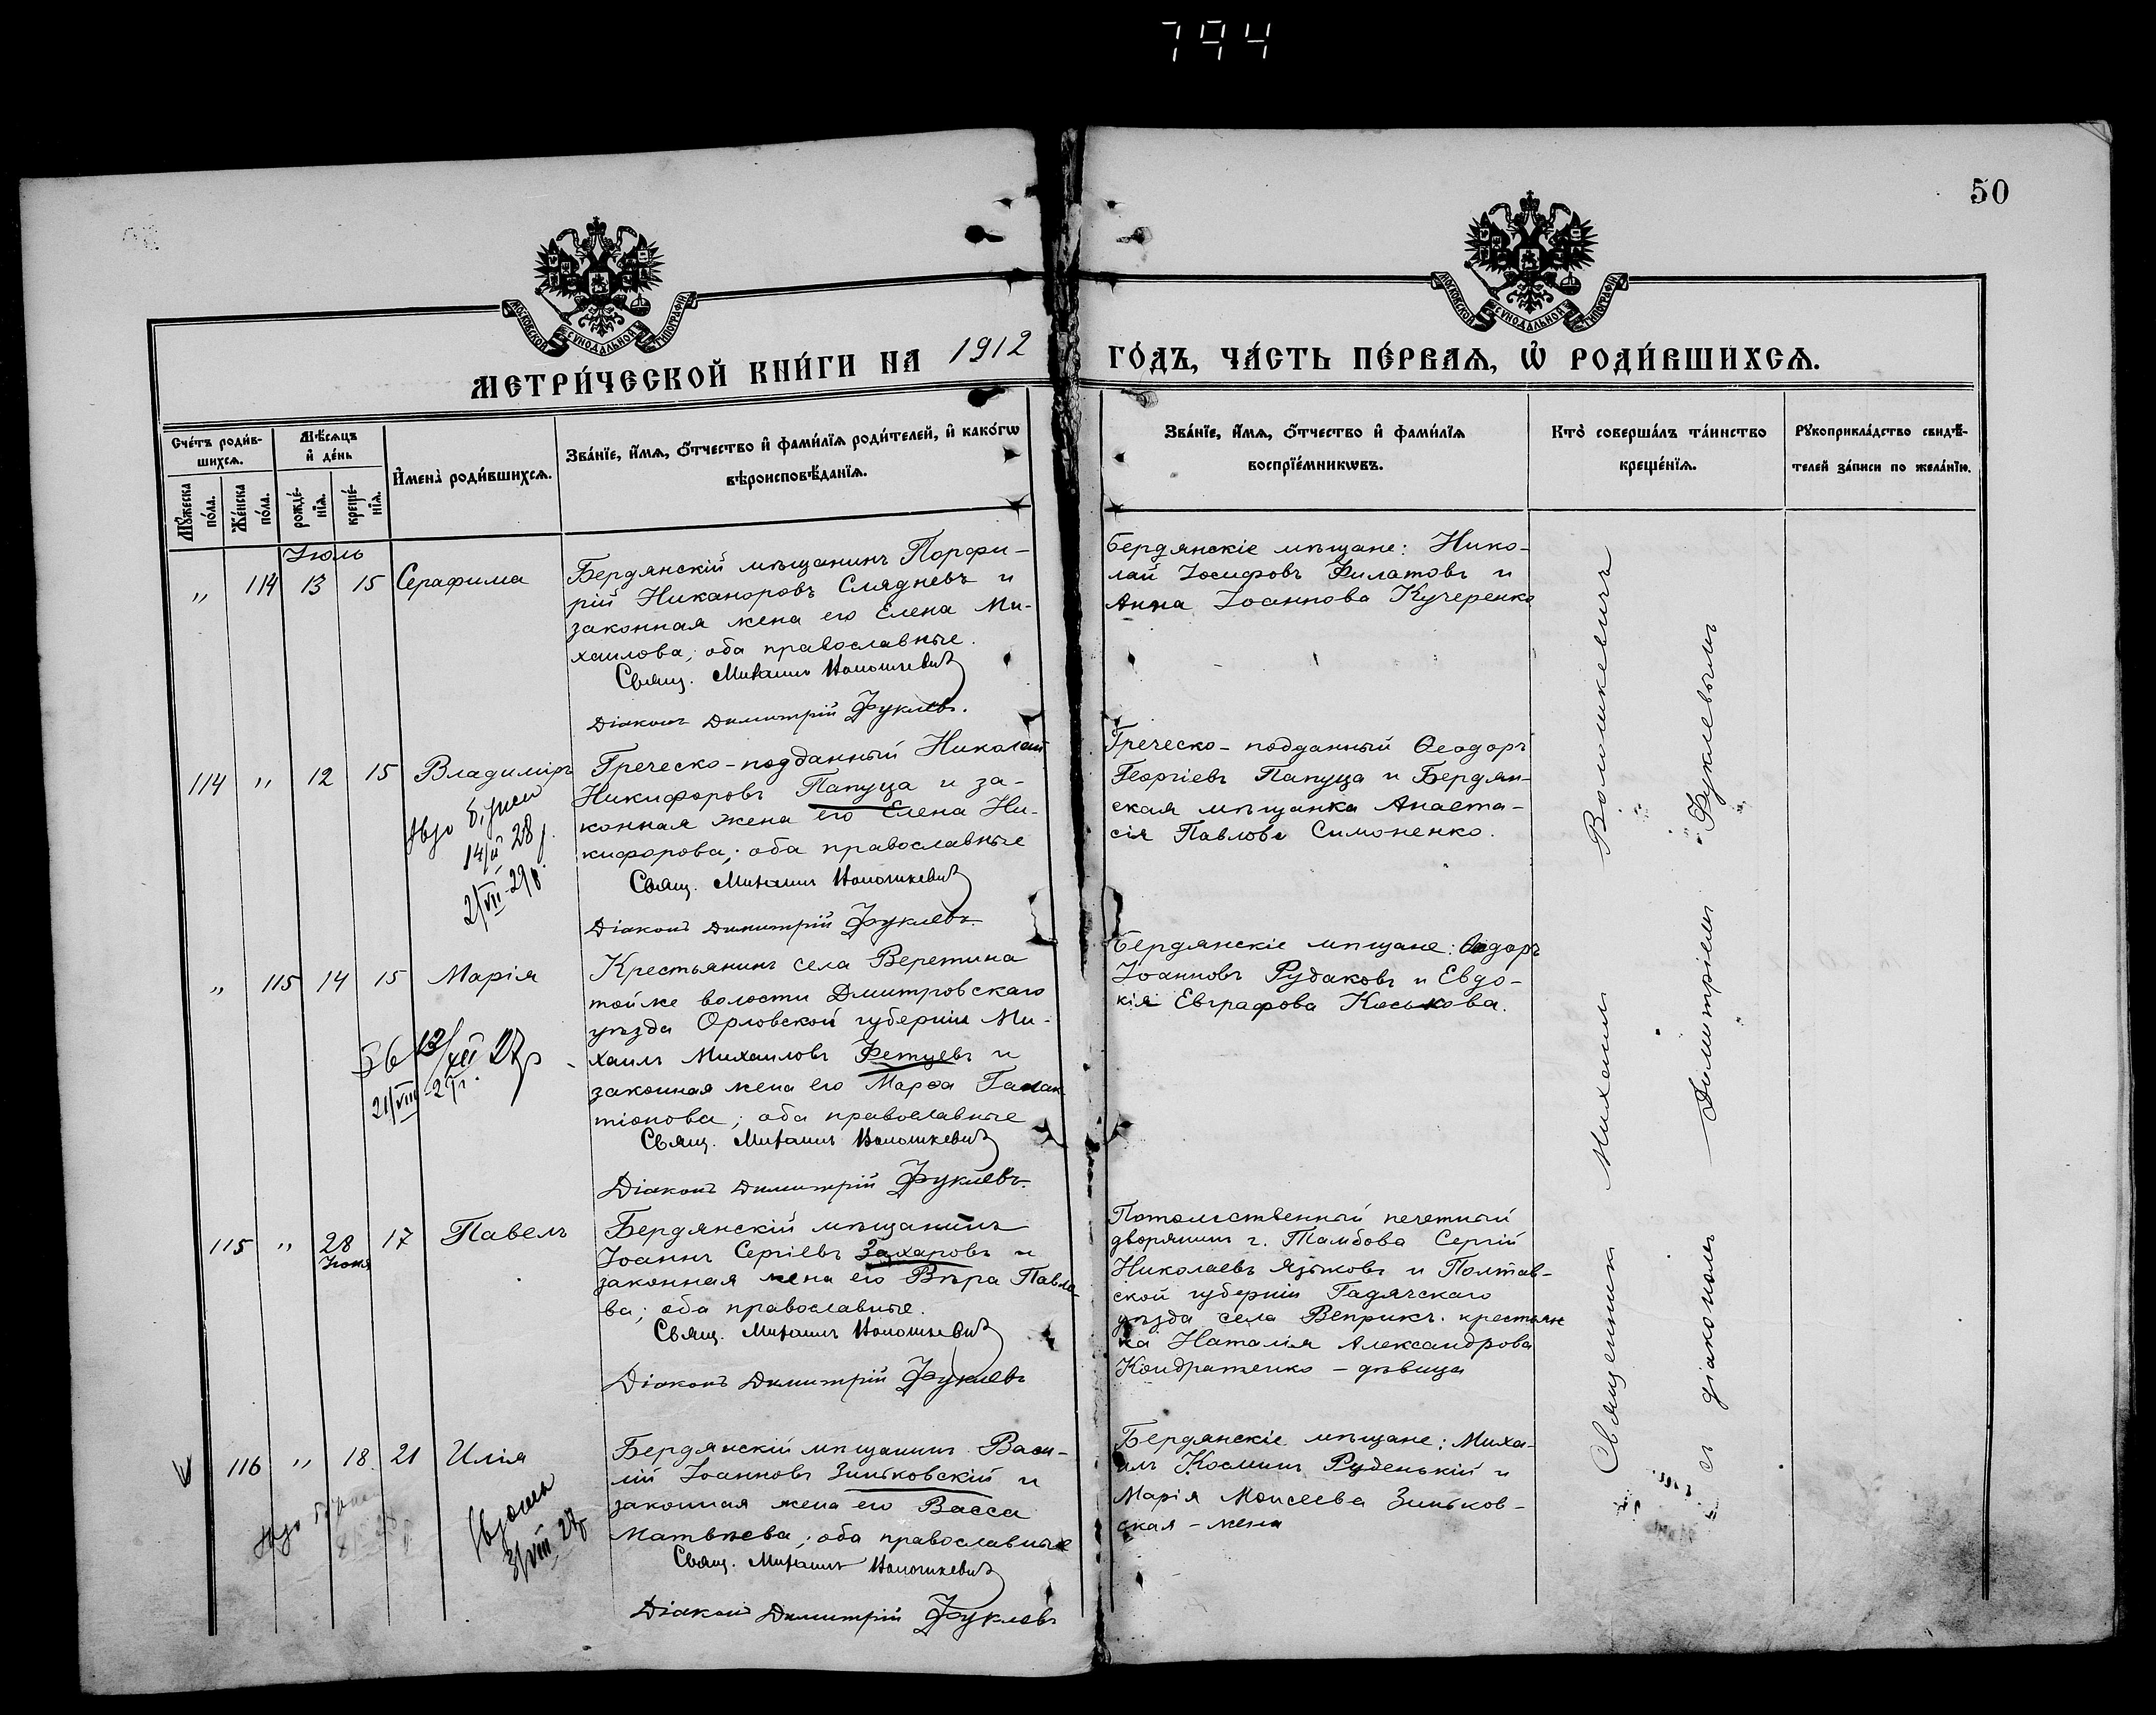 794
50
МОСКОВСКОЙ СѴНОДАЛЬНОЙ ТИПОГРАФІИ
МОСКОВСКОЙ СѴНОДАЛЬНОЙ ТИПОГРАФІИ
МЕТРИ́ЧЕСКОЙ КНИ́ГИ НА 1912 ГО́ДЪ, ЧА́СТЬ ПЕ́РВАѦ, Ѡ҆ РОДИ́ВШИХСѦ.
Сче́тъ роди́в-
шихсѧ.
Мѣ́сѧцъ
и҆ де́нь
Мꙋ́жеска
по́ла.
Же́нска
по́ла.
рожде́-
нїѧ.
креще́-
нїѧ.
И҆мена̀ роди́вшихсѧ.
Зва́нїе, и҆́мѧ, ѻ҆́тчество и҆ фами́лїѧ роди́телей, и҆ како́гѡ
вѣроисповѣ́данїѧ.
Зва́нїе, и҆́мѧ, ѻ҆́тчество и҆ фами́лїѧ
воспрїе́мникѡвъ.
Кто̀ соверша́лъ та́инство
креще́нїѧ.
Рꙋкоприкла́дство свидѣ́-
телей за́писи по жела́нїю.
Іюль
„ 114 13 15 Серафима
Бердянскій мѣщанинъ Порфи-
рій Никаноровъ Слядневъ и
законная жена его Елена Ми-
хаилова; оба православные.
Свящ. Михаилъ Волошкевичъ
Діаконъ Димитрій Фуклевъ.
Бердянскіе мѣщане: Нико-
лай Іосифовъ Филатовъ и
Анна Іоаннова Кучеренко
114 „ 12 15 Владиміръ
14/II 28 г.
2/VII-29 г.
Греческо-подданный Николай
Никифоровъ Папуца и за-
конная жена его Елена Ни-
кифорова; оба православные
Свящ. Михаилъ Волошкевичъ
Діаконъ Димитрій Фуклевъ.
Греческо-подданный Ѳеодоръ
Георгіевъ Папуца и Бердян-
ская мѣщанка Анаста-
сія Павлова Симоненко.
„ 115 14 15 Марія
13/XII 27 г.
21/VIII-29 г.
Крестьянинъ села Веретина
тойже волости Дмитровскаго
уѣзда Орловской губерніи Ми-
хаилъ Михаиловъ Фетцевъ и
законная жена его Марѳа Галак-
тіонова; оба православные
Свящ. Михаилъ Волошкевичъ
Діаконъ Димитрій Фуклевъ.
Бердянскіе мѣщане: Ѳеодоръ
Іоанновъ Рудаковъ и Евдо-
кія Евграфова Каськова.
115 „ 28 17 Павелъ
Іюня
Бердянскій мѣщанинъ
Іоаннъ Сергіевъ Захаровъ и
законная жена его Вѣра Павло-
ва; оба православные.
Свящ. Михаилъ Волошкевичъ
Діаконъ Димитрій Фуклевъ
Потомственный почетный
дворянинъ г. Тамбова Сергій
Николаевъ Языковъ и Полтав-
ской губерніи Гадячскаго
уѣзда села Веприкъ крестьян
ка Наталія Александрова
Кондратенко - дѣвица
116 „ 18 21 Илія
3/VIII 27 г.
Бердянскій мѣщанинъ Васи-
лій Іоанновъ Зиньковскій и
законная жена его Васса
Матвѣева; оба православные
Свящ. Михаилъ Волошкевичъ
Діаконъ Димитрій Фуклевъ
Бердянскіе мѣщане: Миха-
илъ Космин Руденькій и
Марія Моисеева Зиньков-
ская - жена
Священникъ Михаилъ Волошкевичъ
съ діакономъ Димитріемъ Фуклевымъ